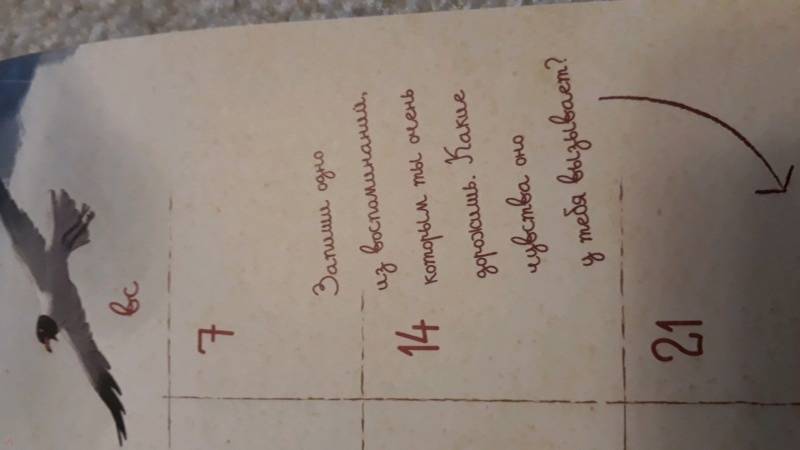 вс
7
Запиши одно
из воспоминаний,
которым ты очень
дорожишь. Какие
чувства оно
у тебя вызывает?
14
21